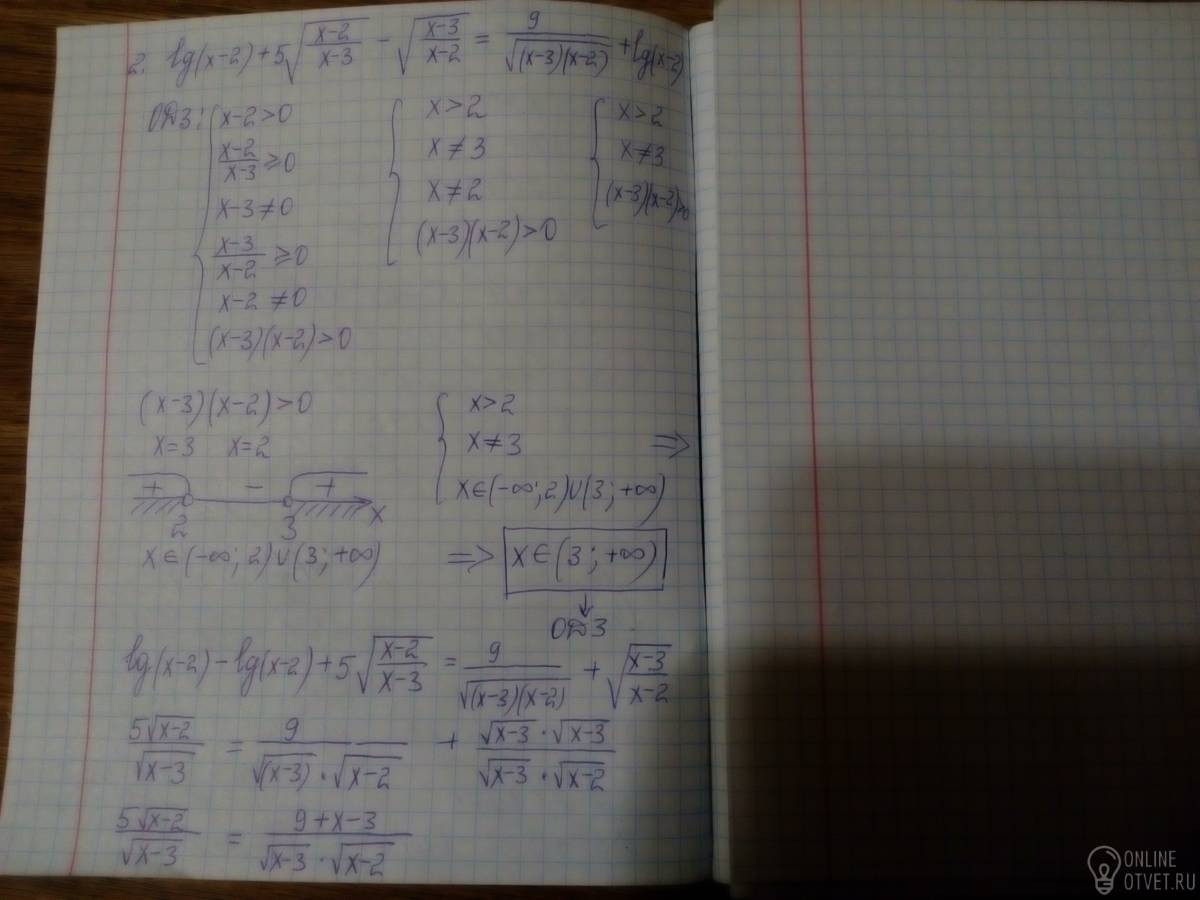 2. lg(x-2)+5√((x-2)/(x-3)) - √((x-3)/(x-2)) = 9/√((x-3)(x-2)) + lg(x-2)
ОДЗ: { x-2>0
(x-2)/(x-3) ≥ 0
x-3≠0
(x-3)/(x-2) ≥ 0
x-2 ≠0
(x-3)(x-2)>0
{ x>2
x≠3
x≠2
(x-3)(x-2)>0
{ x>2
x≠3
(x-3)(x-2)>0
(x-3)(x-2)>0
x=3 x=2
+ - +
2 3 x
x∈(-∞; 2)∪(3; +∞)
{ x>2
x≠3 ⇒
x∈(-∞; 2)∪(3; +∞)
⇒ x∈(3; +∞)
↓
ОДЗ
lg(x-2)-lg(x-2)+5√((x-2)/(x-3)) = 9/√((x-3)(x-2)) + √((x-3)/(x-2))
5√(x-2)/√(x-3) = 9/(√(x-3)·√(x-2)) + (√(x-3)·√(x-3))/(√(x-3)·√(x-2))
5√(x-2)/√(x-3) = (9+x-3)/(√(x-3)·√(x-2))
ONLINE
OTVET.RU